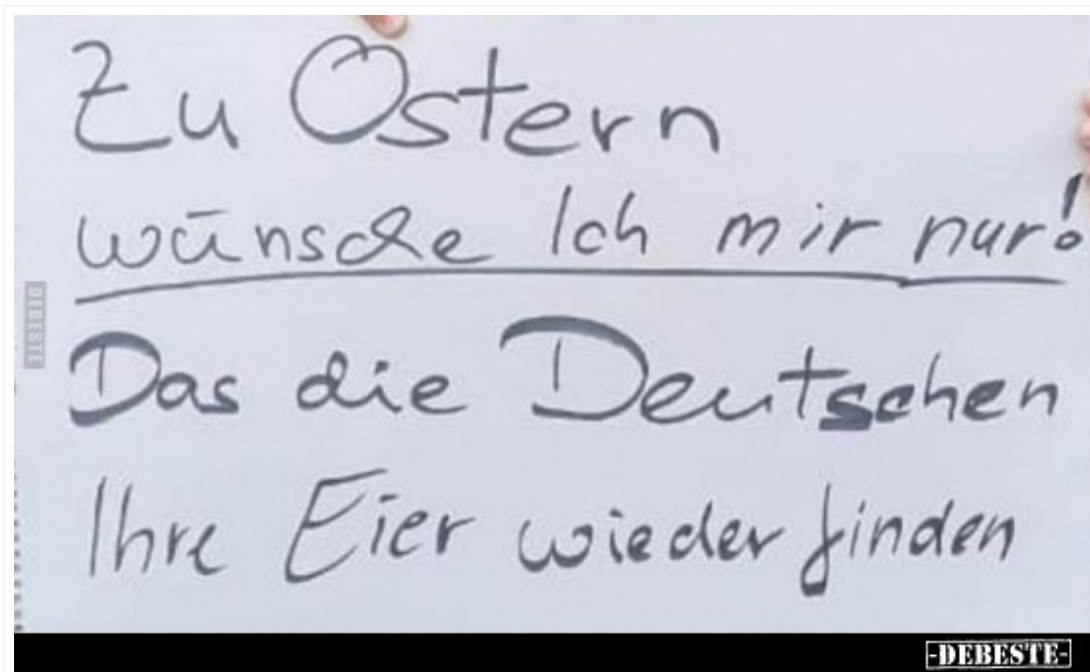 Zu Ostern
wünsche Ich mir nur!
Das die Deutschen
Ihre Eier wieder finden
DEBESTE
-DEBESTE-